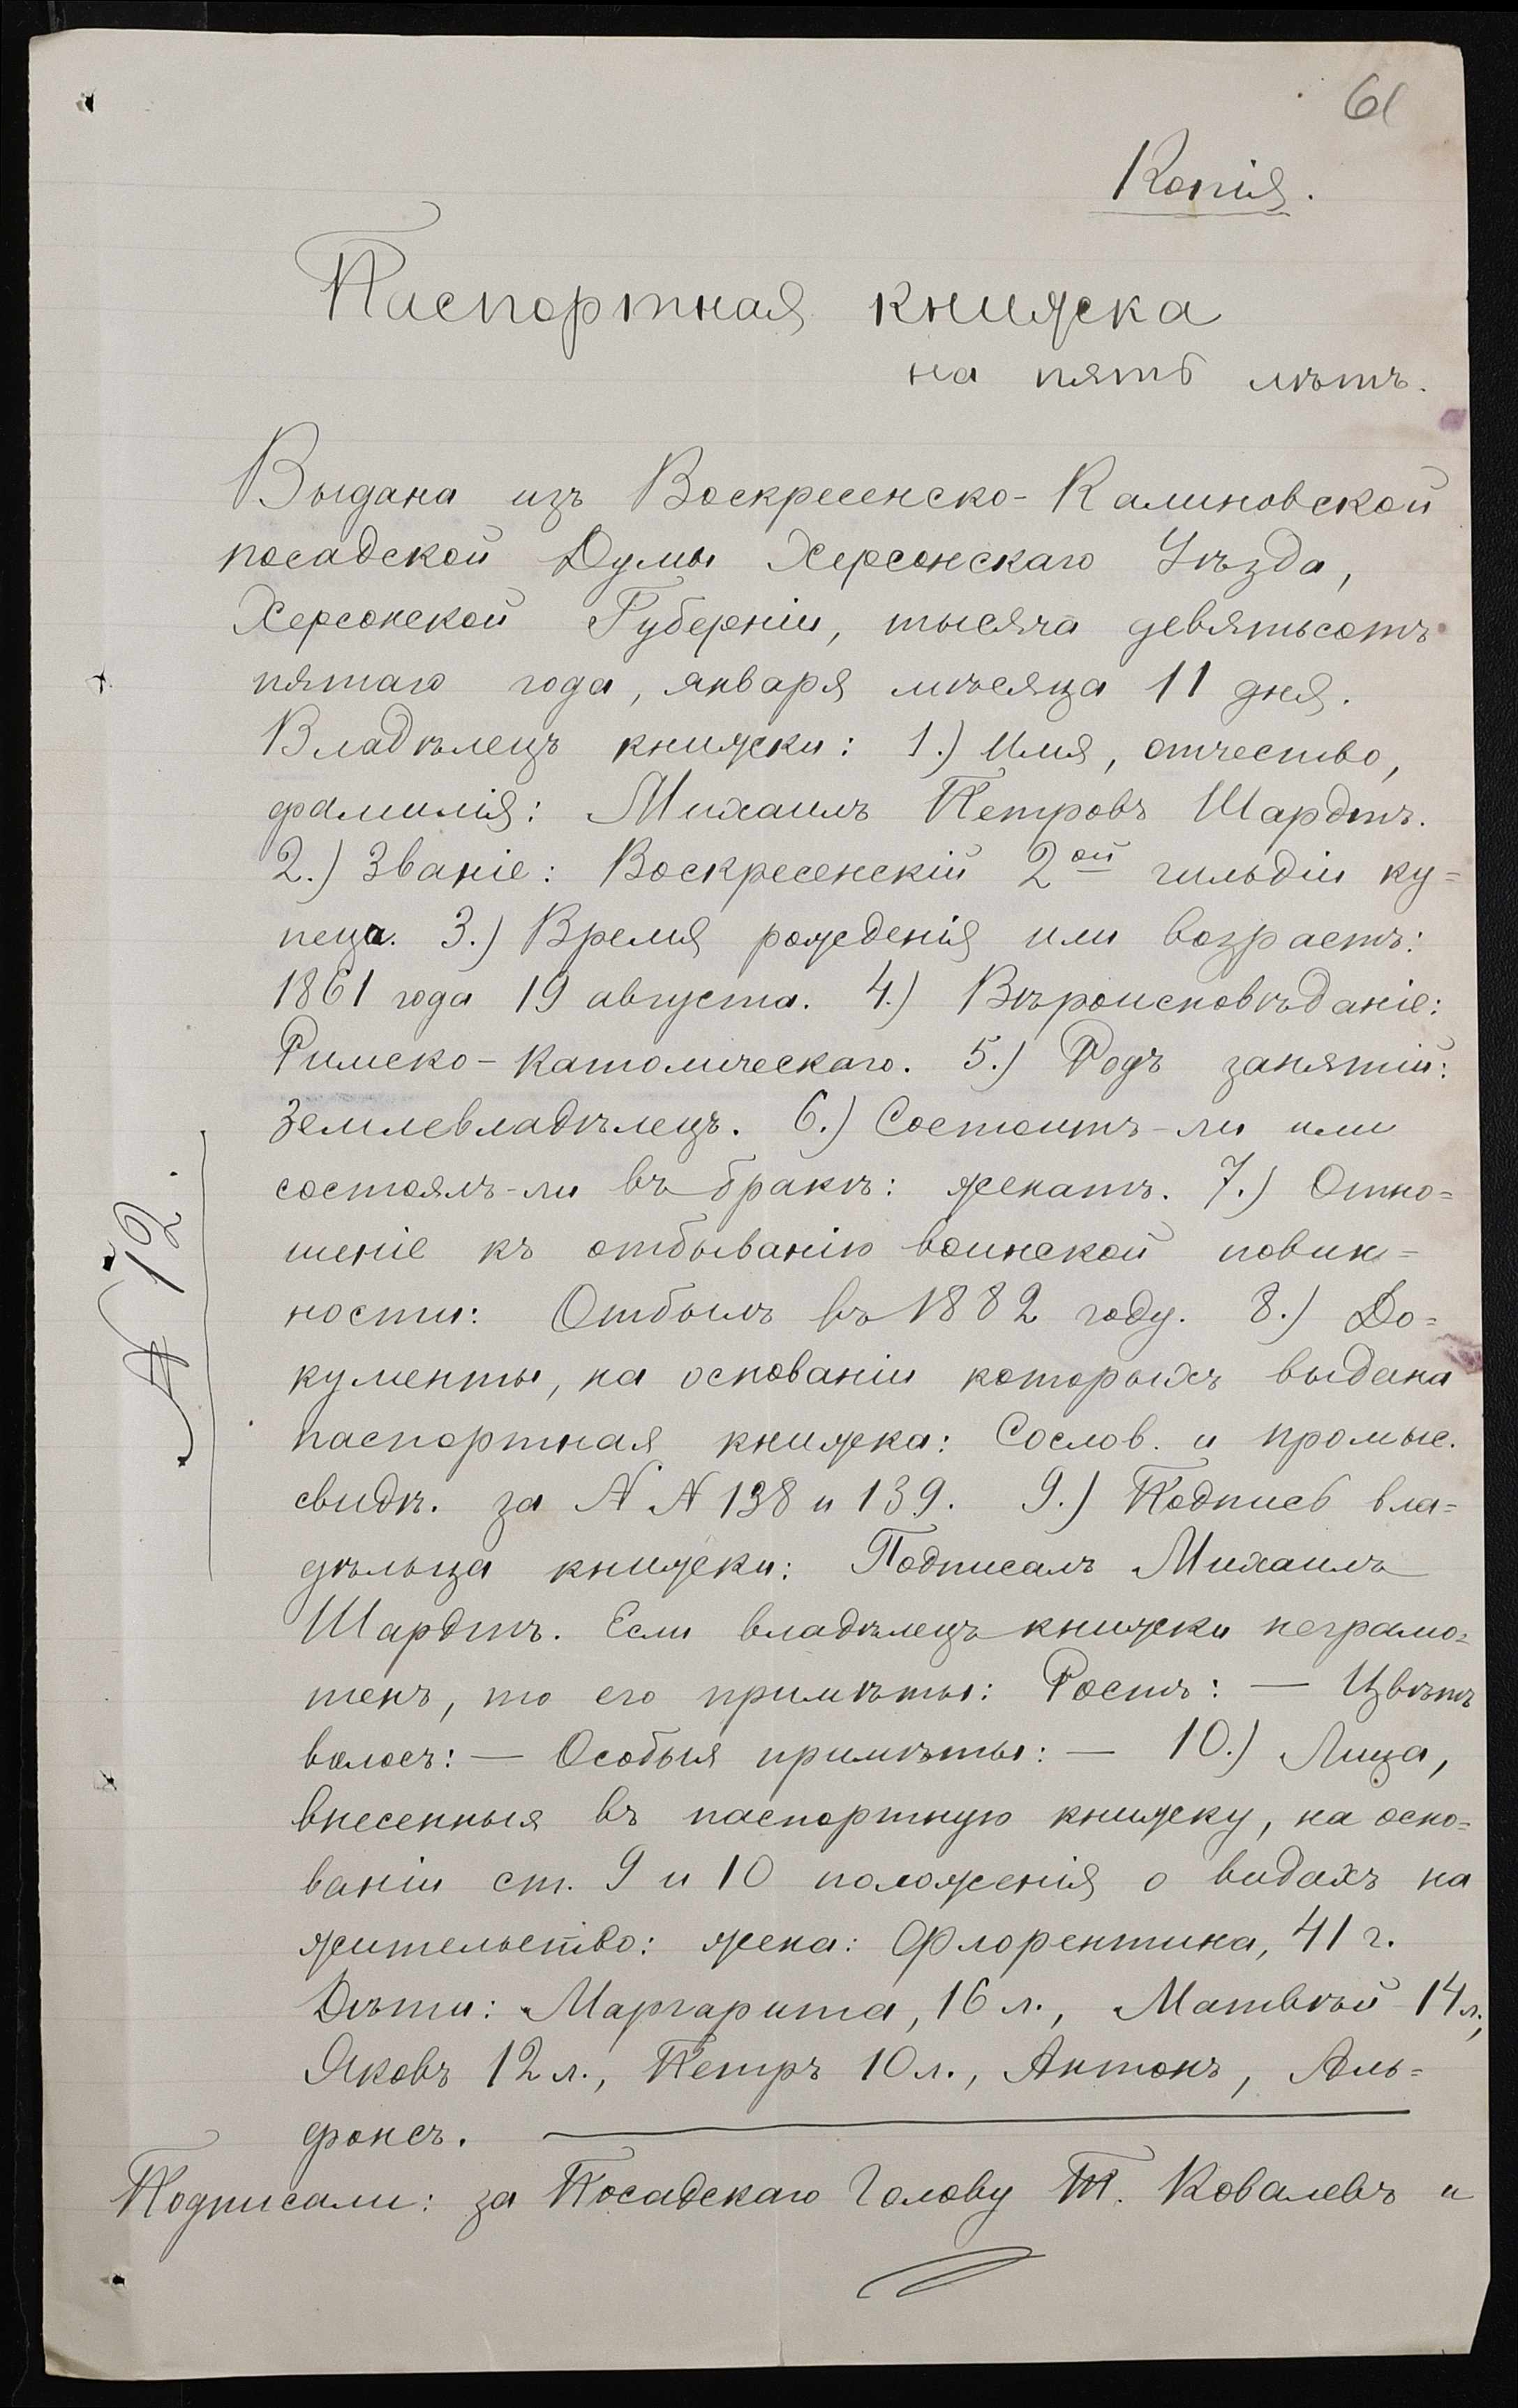 61
Копія.
Паспортная книжка
на пять лѣтъ.
Выдана изъ Воскресенско-Калиновской
посадской Думы Херсонскаго Уѣзда,
Херсонской Губерніи, тысяча девятьсотъ
пятаго года, января мѣсяца 11 дня.
Владѣлецъ книжки: 1.) Имя, отчество,
фамилія: Михаилъ Петровъ Шардтъ.
2.) Званіе: Воскресенскій 2ой гильдіи ку=
пеца. 3.) Время рожденія или возрастъ:
1861 года 19 августа. 4.) Вѣроисповѣданіе:
Римско-Католическаго. 5.) Родъ занятій:
Землевладѣлецъ. 6.) Состоитъ-ли или
состоялъ-ли въ бракѣ: женатъ. 7.) Отно=
шеніе къ отбыванію воинской повин=
ности: Отбылъ въ 1882 году. 8.) До=
кументы, на основаніи которыхъ выдана
паспортная книжка: Сослов. и промыс.
свидѣ. за № № 138 и 139. 9.) Подпись вла=
дѣльца книжки: Подписалъ Михаилъ
Шардтъ. Если владѣлецъ книжки неграмо=
тенъ, то его примѣты: Ростъ: — Цвѣтъ
волосъ: — Особыя примѣты: — 10.) Лица,
внесенныя въ паспортную книжку, на осно=
ваніи ст. 9 и 10 положенія о видахъ на
жительство: жена: Флорентина, 41 г.
Дѣти: Маргарита, 16 л., Матвѣй 14 л.,
Яковъ 12 л., Петръ 10 л., Антонъ, Аль=
фонсъ.
Подписали: за Посадскаго Голову Т. Ковалевъ и
№ 12.